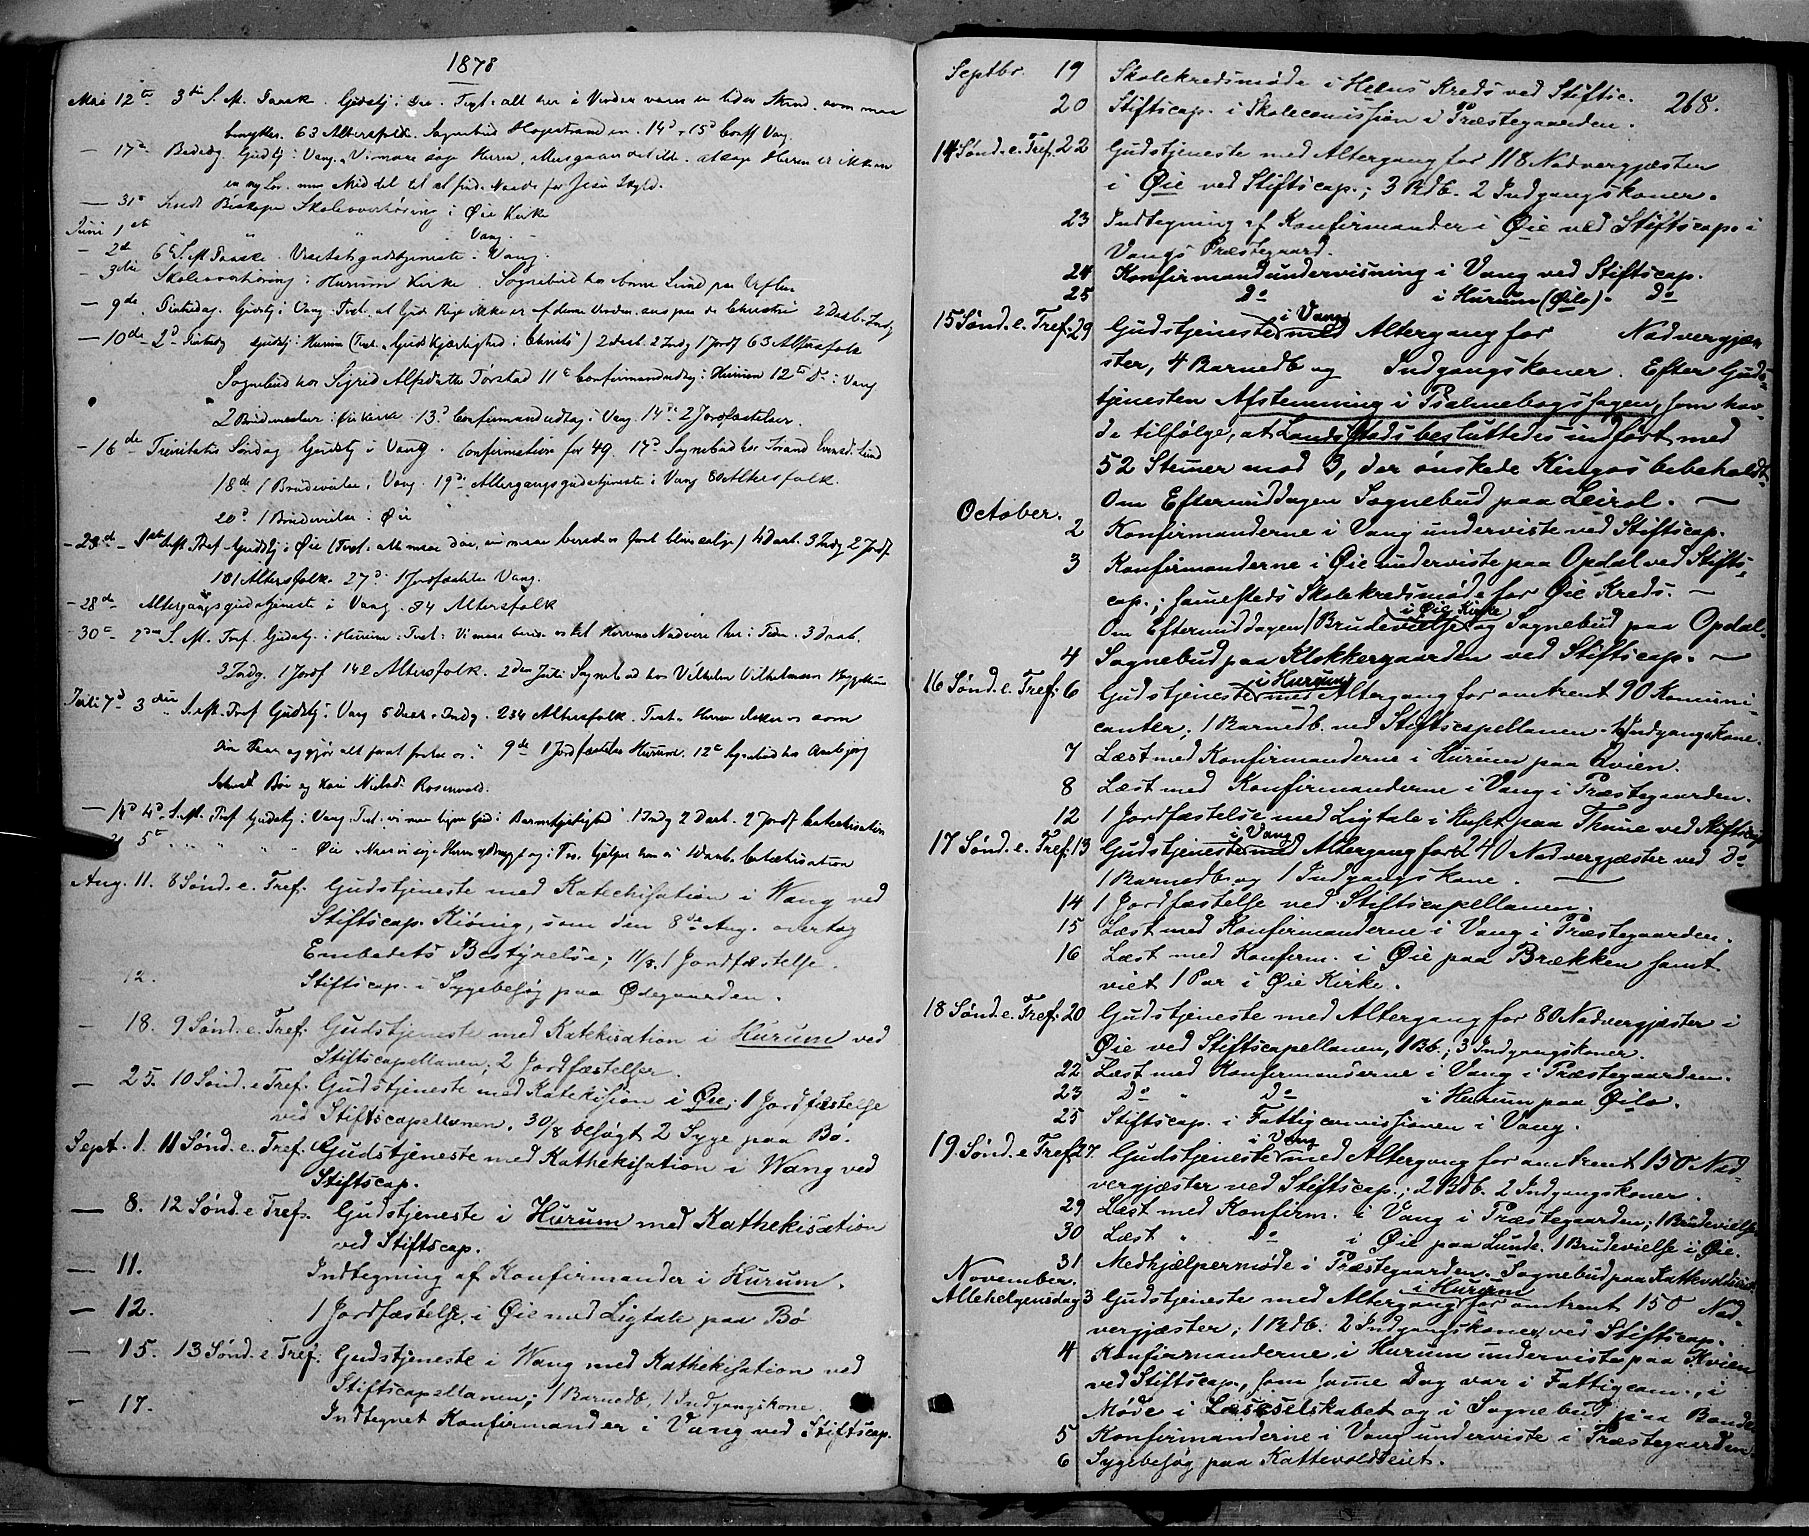 1878
Mai 12te 3die S. e. Paask. Gudstj. i Øie. Text: alt her i Verden være en liden Stund. som maa
benyttes. 63 Altersfolk. Sognebud Høgestranden. 14de 15de Conff Vang.
— 17de Bededag. Gudstj. i Vang. Vi maae søge Herren,
en ny Lov. men Middel til at finde Naade for Jesu Skyld.
— 31te Biskopens Skoleoverhøring i Øie Kirke
Juni 1ste " " i Vang.
— 2den 6te S. e. Paaske. Visitatsgudstjeneste i Vang.
— 3die Skoleoverhøring i Hurum Kirke. Sognebud hos Anne Lund paa
— 9de Pintsedag. Gudstj. i Vang. Text. at Guds Rige ikke er af denne Verden. 2 Daab. Indg
— 10de 2den Pintsedag Gudstj. i Hurum (Text. Guds Kjærlighed i Christo) 2 Daab. 2 Indg 1 Jordf 63 Altersfolk
Sognebud hos Sigrid Tørstad 11te Confirmandudtag i Hurum 12te Do i Vang
2 Brudevielser i Øie Kirke. 13de Confirmandudtag i Vang. 14de 2 Jordfæstelser.
— 16de Trinitatis Søndag Gudstj. i Vang. Confirmation for 49. 17de Sognebud hos
18de 1 Brudevielse i Vang. 19de Altergangsgudstjeneste i Vang 80 Altersfolk.
20de 1 Brudevielse i Øie
— 23de 1ste S. e. Tref Gudstj. i Øie (Text. alle maae døe, vi maae berede os forat blive salige) 4 Daab. 3 Indg 2 Jordf
101 Altersfolk. 27de 1 Jordfæstelse Vang.
— 28de Altergangsgudstjeneste i Vang. 84 Altersfolk
— 30te 2den S. e. Tref. Gudstj. i Hurum. Text. Vi maae berede os til Herrens Nadvere her i Tiden. 3 Daab.
3 Indg. 1 Jordf 142 Altersfolk. 2den Juli Sognebud hos Vilhelm Vilhelmsen
Juli 7de 3die S. e. Tref Gudstj. i Vang 5 Daab. Indg. 234 Altersfolk. Text. Herren elsker os som
sin Fader og gjør alt forat frelse os. 9de 1 Jordfæstelse Hurum. 12te Sognebud hos
Bøe og Kari Nielsd. Rosenvold.
— 14de 4de S. e. Tref Gudstj. i Vang. Text. vi maae ligne Gud i Barmhjertighed 1 Indg 2 Daab. 2 Jordf Catechisation
21 5te " " " Øie Catechisation
Aug. 11. 8 Sønd. e. Tref. Gudstjeneste med Katekisation i Wang ved
Stiftscap. Kiönig, som den 8de Aug. overtog
Embedets Bestyrelse; 11/8. 1 Jordfæstelse.
12. Stiftscap. i Sygebesøg paa Ødegaarden.
— 18. 9 Sønd. e. Tref. Gudstjeneste med Katekisation i Hurum ved
Stiftscapellanen; 2 Jordfæstelser.
— 25. 10 Sønd. e Tref. Gudstjeneste med Katekision i Øie; 1 Jordfæstelse
ved Stiftscapellanen. 30/8 besøgt 2 Syge paa Bö.
Sept. 1. 11 Sønd. e. Tref. Gudstjeneste med Kathekisation i Wang ved
Stiftscap.
— 8. 12 Sønd. e Tref. Gudstjeneste i Hurum med Kathekisation
ved Stiftscap.
— 11. Indtegning af Konfirmander i Hurum.
— 12. 1 Jordfæstelse i Øie med Ligtale paa Bö
— 15. 13 Sønd. e. Tref. Gudstjeneste i Wang med Kathekisation ved
Stiftscapellanen; 1 Barnedb, 1 Indgangskone.
— 17. Indtegnet Konfirmander i Vang ved Stiftscap.
268.
Septbr. 19 Skolekredsmøde i Helus Kreds ved Stiftsc.
20 Stiftscap. i Skolecomission i Præstegaarden.
14 Sønd. e. Tref. 22 Gudstjeneste med Altergang for 118 Nadvergjæster
i Øie ved Stiftscap.; 3 Bdb. 2 Indgangskoner.
23 Indtegning af Konfirmander i Øie ved Stiftscap. i
Vangs Præstegaard.
24 Konfirmandundervisning i Vang ved Stiftscap.
25 Do i Hurum (Øilo). Do
15 Sønd. e. Tref. 29 Gudstjeneste i Vang med Altergang for Nadvergjæ-
ster, 4 Barnedb og Indgangskoner. Efter Guds-
tjenesten Afstemning i Psalmebogssagen, som hav-
de tilfölge, at Landstads besluttedes indført med
52 Stemer mod 3, der ønskede Kingos bebeholdt.
Om Eftermiddagen Sognebud paa Leirol. —
October. 2 Konfirmanderne i Vang underviste ved Stiftscap.
3 Konfirmanderne i Øie underviste paa Opdal ved Stifts-
cap.; samesteds Skolekredsmøde for Øie Kreds. —
Om Eftermiddagen 1 Brudevielse i Øie Kirke og Sognebud paa Opdal.
4 Sognebud paa Klokkergaarden ved Stiftscap. —
16 Sønd. e. Tref. 6 Gudstjeneste i Hurum med Altergang for omtrent 90 Komuni-
canter; 1 Barnedb. ved Stiftscapellanen. 1 Indgangskone.
7 Læst med Konfirmanderne i Hurum paa Qvien.
8 Læst med Konfirmanderne i Vang i Præstegaarden.
12 1 Jordfæstelse med Ligtale i Huset paa Thune ved Stiftscap
17 Sønd. e. Tref. 13 Gudstjeneste i Vang med Altergang for 240 Nadvergjæster ved Do
1 Barnedb og 1 Indgangskone. —
14 1 Jordfæstelse ved Stiftscapellanen.
15 Læst med Konfirmanderne i Vang i Præstegaarden.
16 Læst med Konfirm. i Øie paa Brækken samt
viet 1 Par i Øie Kirke.
18 Sønd. e. Tref. 20 Gudstjeneste med Altergang for 80 Nadvergjæster i
Øie ved Stiftscapellanen, 1 Bb.; 3 Indgangskoner.
22 Læst med Konfirmanderne i Vang i Præstegaarden.
23 Do " Do i Hurum paa Øilo.
25 Stiftscap. i Fattigcommissionen i Vang.
19. Sønd. e Tref. 27 Gudstjeneste i Vang med Altergang for omtrent 150 Nad-
vergjæster ved Stiftscap.; 2 Bdb. 2 Indgangskoner.
29 Læst med Konfirm. i Vang i Præstegaarden; 1 Brudevielse
30 Læst " Do i Øie paa Lunde. 1 Brudevielse i Øie.
31 Medhjælpermøde i Præstegaarden. Sognebud paa Kattevoldeiet.
November.
Allehelgensdag 3 Gudstjeneste med Altergang i Hurum for omtrent 150 Nad-
vergjæster; 1 Bdb. 2 Indgangskoner ved Stiftscap.
4 Konfirmanderne i Hurum underviste paa Kvien
ved Stiftscap., som same Dag var i Fattigcom., i
Møde i Læseselskabet og i Sognebud paa Bunde
5 Konfirmanderne i Vang underviste i Præstegaarden
6 Sygebesøg paa Kattevoldseiet.